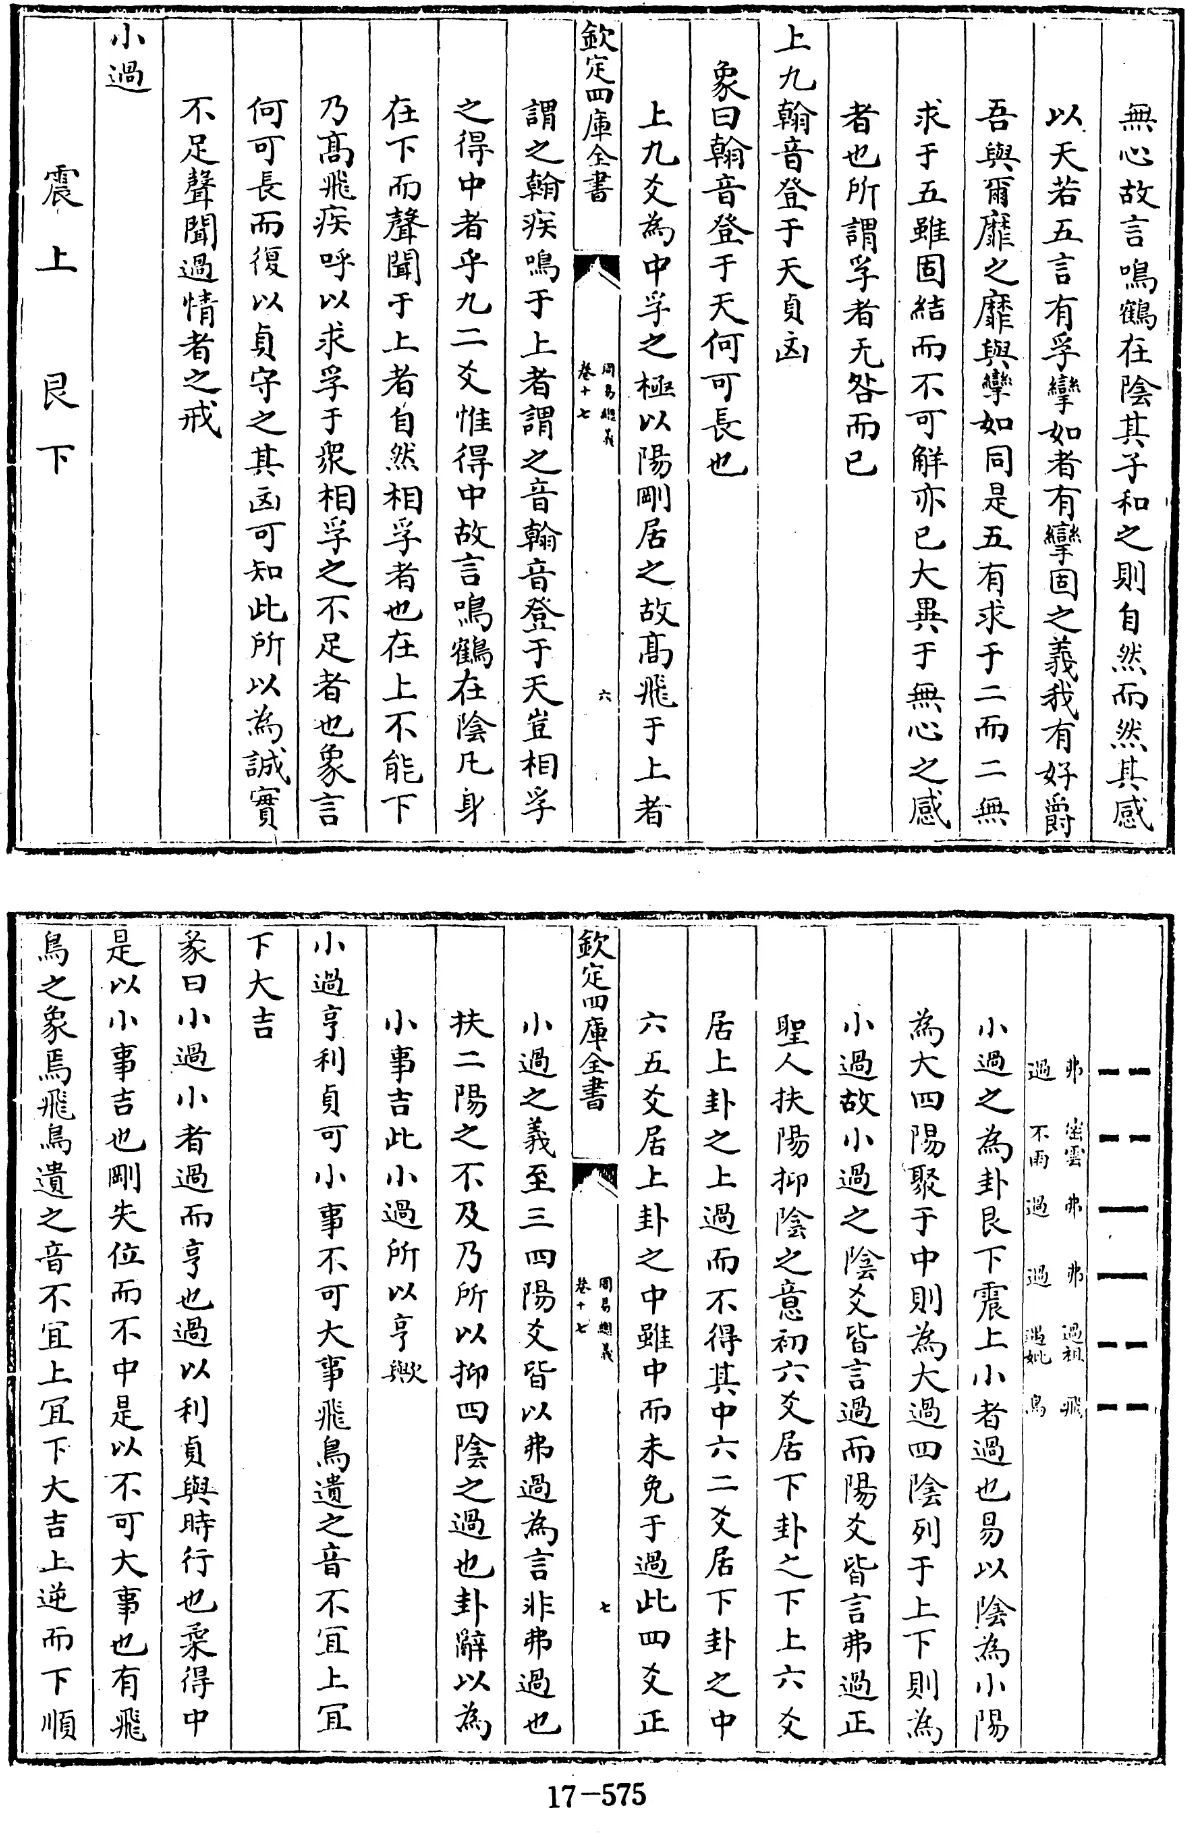 無心故言鳴鶴在陰其子和之則自然而然其感
以天若五言有孚攣如者有攣固之義我有好爵
吾與爾靡之靡與攣如同是五有求于二而二無
求于五雖固結而不可解亦已大異于無心之感
者也所謂孚者无咎而已
上九翰音登于天貞凶
象曰翰音登于天何可長也
上九爻為中孚之極以陽剛居之故髙飛于上者
欽定四庫全書
周易總義
卷十七
六
謂之翰疾鳴于上者謂之音翰音登于天豈相孚
之得中者乎九二爻惟得中故言鳴鶴在陰凡身
在下而聲聞于上者自然相孚者也在上不能下
乃髙飛疾呼以求孚于衆相孚之不足者也象言
何可長而復以貞守之其凶可知此所以為誠實
不足聲聞過情者之戒
小過
震上 艮下
弗過
密雲不雨
弗過
弗過
過祖遇妣
飛鳥
小過之為卦艮下震上小者過也易以陰為小陽
為大四陽聚于中則為大過四陰列于上下則為
小過故小過之陰爻皆言過而陽爻皆言弗過正
聖人扶陽抑陰之意初六爻居下卦之下上六爻
居上卦之上過而不得其中六二爻居下卦之中
六五爻居上卦之中雖中而未免于過此四爻正
欽定四庫全書
周易總義
卷十七
七
小過之義至三四陽爻皆以弗過為言非弗過也
扶二陽之不及乃所以抑四陰之過也卦辭以為
小事吉此小過所以亨歟
小過亨利貞可小事不可大事飛鳥遺之音不宜上宜
下大吉
彖曰小過小者過而亨也過以利貞與時行也柔得中
是以小事吉也剛失位而不中是以不可大事也有飛
鳥之象焉飛鳥遺之音不宜上宜下大吉上逆而下順
17-575